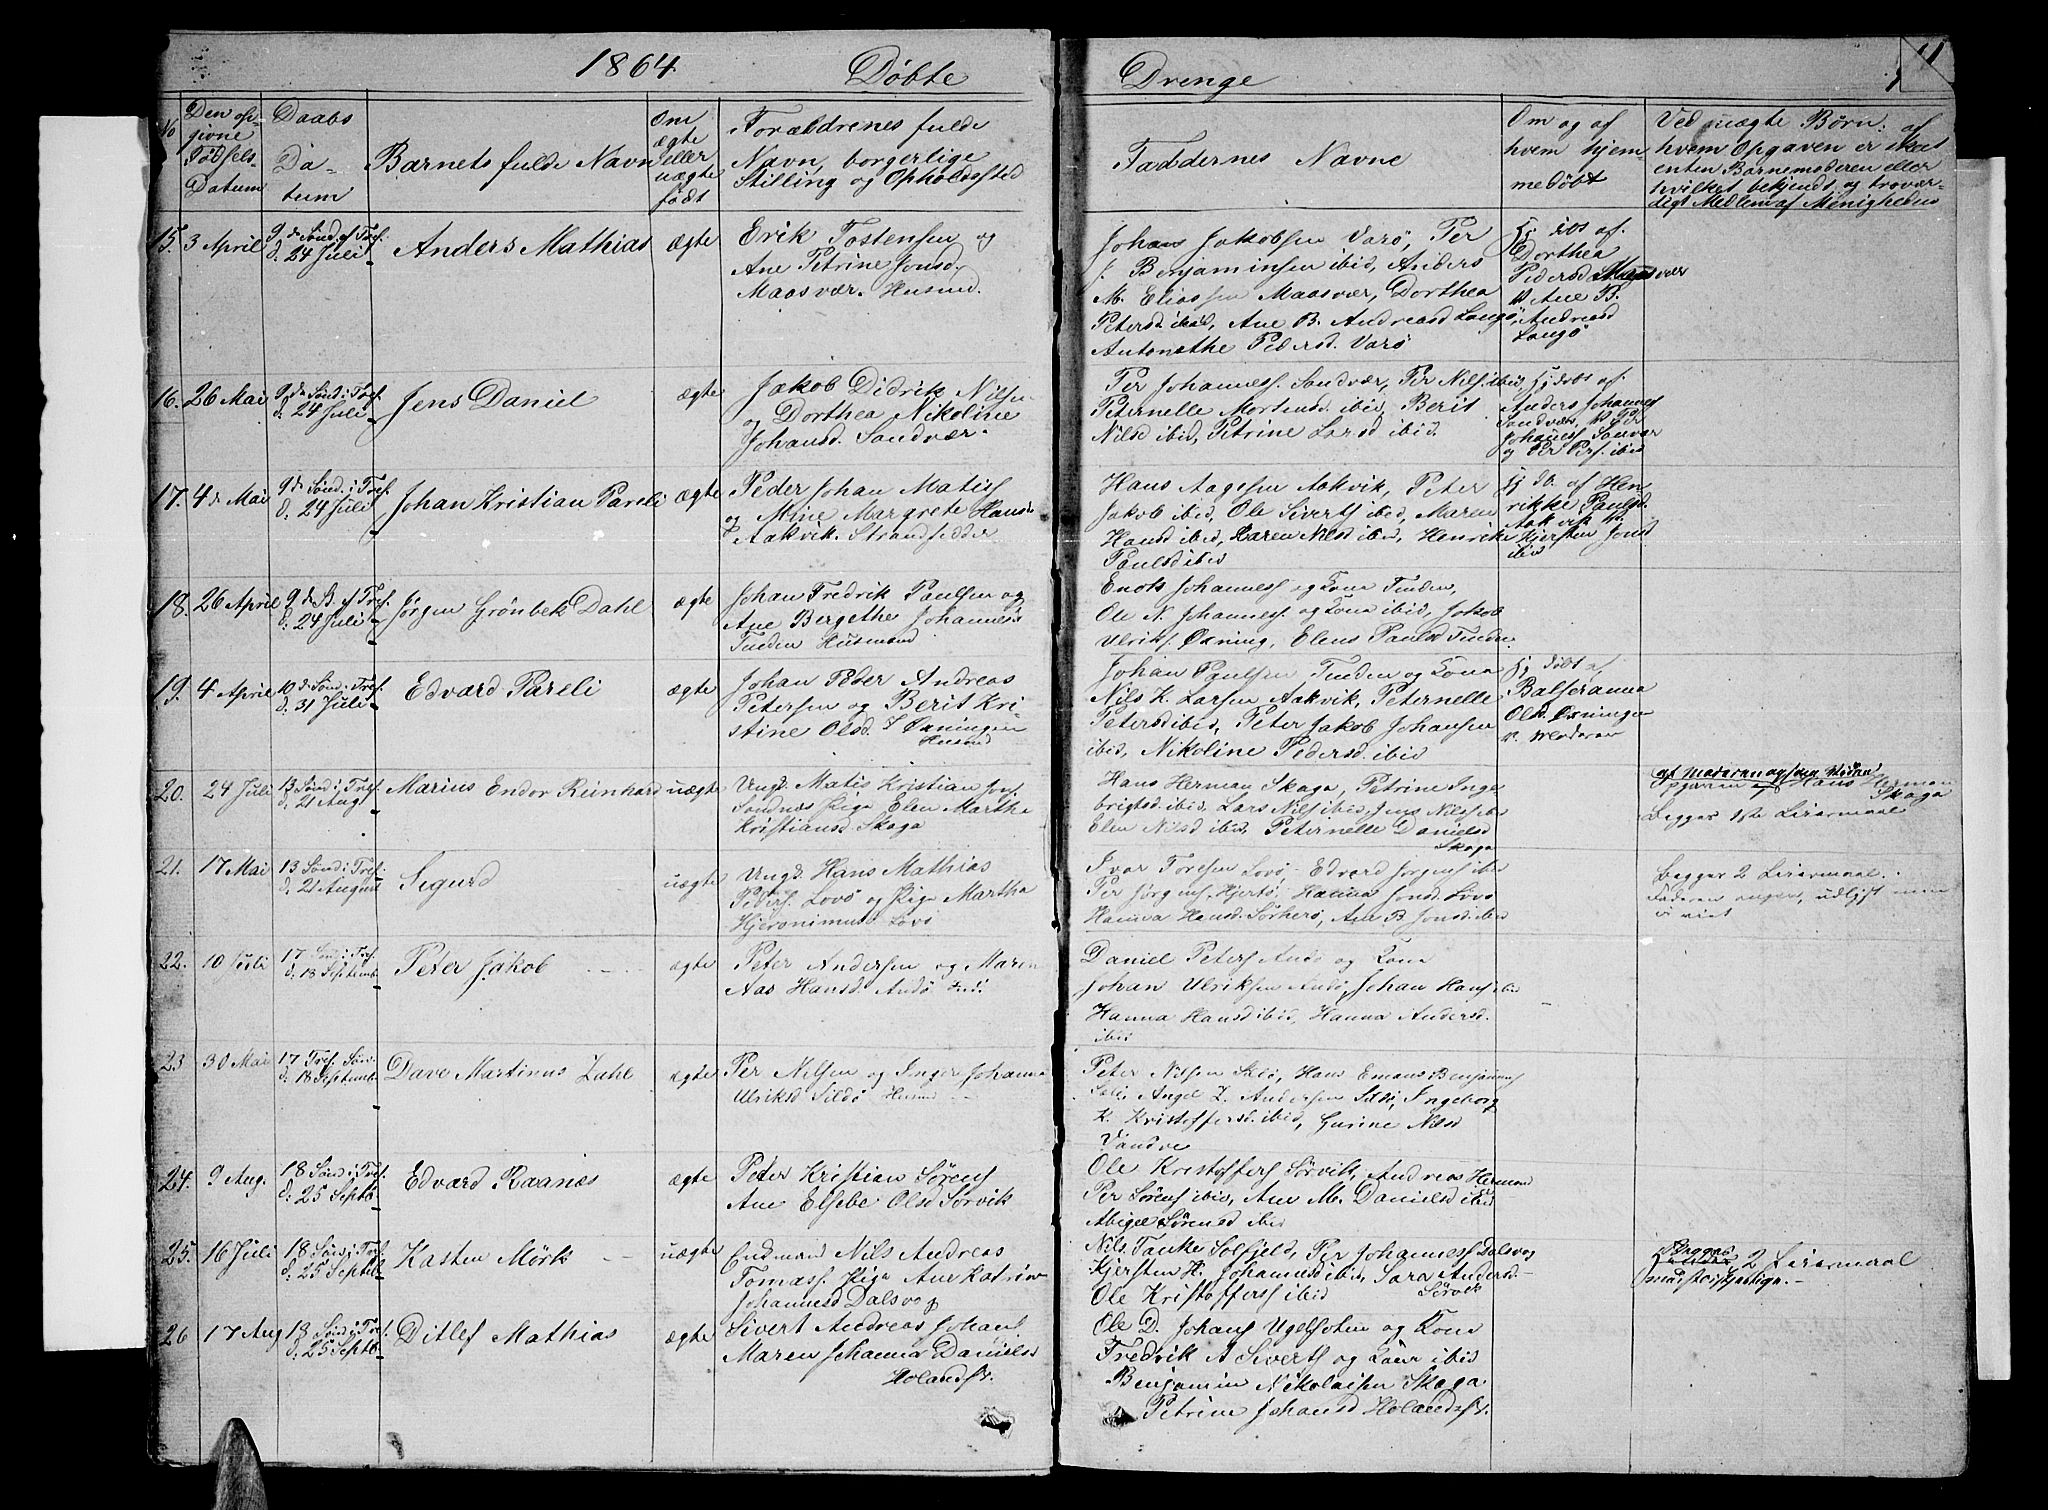 1864 Döbte Drenge 11
No
Den op-
givne
Födsels
Datum
Daabs
Da-
tum
Barnets fulde Navn
Om
ægte
eller
uægte
födt
Forældrenes fulde
Navn, borgerlige
Stilling og Opholdssted
Faddernes Navne
Om og af
hvem hjem-
medöbt
Ved uægte Börn: af
hvem Opgaven er skeet
enten Barnemoderen eller
hvilket bekjendt og trovær-
digt Medlem af Menigheden
15. 3 April 9de Sönd. ef Tref.
d. 24 Juli Anders Mathias ægte
Erik Tostensen og
Ane Petrine Jonsd.
Maasvær. Husmd.
Johan Jakobsen Varö, Per
J. Benjaminsen ibid, Anders
M. Eliassen Maasvær, Dorthea
Petersd ibid, Ane B. Andreasd Langö,
Antonethe Pedersd. Varö
af
Dorthea
Pedersd Maasvær
Ane B.
Andreasd
Langö
16. 26 Mai 9de Sönd. i Tref.
d. 24 Juli Jens Daniel ægte
Jakob Didrik Nilsen
og Dorthea Nikoline
Johansd. Sandvær.
Per Johanness. Sandvær, Per Nils. ibid,
Peternelle Mortensd. ibid, Berit
Nilsd ibid, Petrine Larsd ibid.
af
Anders Johannes
Sandvær,
Johaness Sanvær
og Per Pers. ibid
17. 4de Mai 9de Sönd. i Tref.
d. 24 Juli Johan Kristian Pareli ægte
Peder Johan Matiss
og Mine Margrete Hansd
Aakvik. Strandsidder
Hans Aagesen Aakvik, Peter
Jakob ibid, Ole Siverts ibid, Maren
Hansd ibid, Karen Nilsd ibid, Henrikke
Paulsd ibid
Hj. db. af Hen-
rikke Paulsd.
Aakvik
Kjersten Jonsd
ibid
18. 26 April 9de S. ef Tref.
d. 24 Juli Jörgen Grönbek Dahl ægte
Johan Fredrik Paulsen og
Ane Bergethe Johannesd
Tinden Husmand
Enok Johanness og Kona Tinden,
Ole N. Johanness. og Kona ibid, Jakob
Ulriks. Öxning, Elens Paulsd Tinden.
19. 4 April 10de Sönd. i Tref.
d. 31 Juli Edvard Pareli ægte
Johan Peter Andreas
Petersen og Berit Kri-
stine Olsd. Öxningen
Husmd
Johan Paulsen Tinden og Kona
Nils K. Larsen Aakvik, Peternelle
Petersd ibid, Peter Jakob Johansen
ibid, Nikoline Pedersd. ibid
Hj. döbt af
Balseranna
Olsd. Öxningen
v. Moderen
20. 24 Juli 13 Sönd i Tref.
d. 21 Aug Marius Endor Reinhard uægte
Ungk. Matis Kristian Jons.
Sandnes Pige Elen Martha
Kristiansd. Skaga
Hans Herman Skaga, Petrine Inge
brigtsd. ibid, Lars Nils ibid, Jens Nils ibid
Elen Nilsd ibid, Peternelle Danielsd
Skaga
Opgaven Hans Herman
Skaga
Begges 1ste Leiermaal
21. 17 Mai 13 Sönd i Tref.
d. 21 August Sigurd uægte
Ungk. Hans Mathias
Peders. Lovö og Pige Martha
Hjeronimusd Lovö
Ivar Toresen Lovö, Edvard Jörgens ibid
Per Jörgens. Hjertö, Hanna Jonsd. Lovö
Hanna Hansd. Sörherö, Ane B. Jonsd. ibid
Begges 2 Leiermaal.
Faderen angiven, udlagt men
ei vist
22. 10 Juli 17 Sönd i Tref.
d. 18 Septemb. Peter Jakob ægte
Peter Andersen og Maren
Aas Hansd. Andö Ind.
Daniel Peters Andö og Kona
Johan Ulriksen Andö, Johan Hans ibid
Hanna Hansd ibid, Hanna Andersd.
ibid
23 30 Mai 17 Tref. Sön.
d. 18 Septemb. Dave Martinus Zahl ægte
Per Nilsen og Inger Johanna
Ulriksd Sildö Husmd
Peter Nilsen Sildö, Hans Emans Benjamins
Angel Z. Andersen Ingeborg
K. Kristoffersd. ibid, Gurine Nilsd
Vandve
24. 9 Aug. 18 Sönd i Tref.
d. 25 Septb. Edvard Kaanæs ægte
Peter Kristian Sörens
Ane Elsebe Olsd Sörvik
Ole Kristoffers Sörvik, Andreas Hermand
Per Sörens ibid, Ane M. Danielsd ibid
Abigel Sörensd ibid
25. 16 Juli 18 Sön i Tref.
d. 25 Septb. Kasten Mörk uægte
Enkemand Nils Andreas
Tomass. Pige Ane Katrine
Johannesd Dalsvog
Nils Tanke Solfjeld, Per Johanness Dalsvog
Kjersten H. Johannesd ibid, Sara Andersd.
Ole Kristoffers ibid Sörvik
Begges 2 Leiermaal
26 17 Aug 18 Sönd i Tref.
d. 25 Septb. Ditlef Mathias ægte
Sivert Andreas Johans
Maren Johanna Danielsd
Holandsv.
Ole D. Johans Ugelsoten og Kona
Fredrik A Siverts og Kona ibid
Benjamin Nikolaisen Skaga
Petrine Johansd Holandsv.